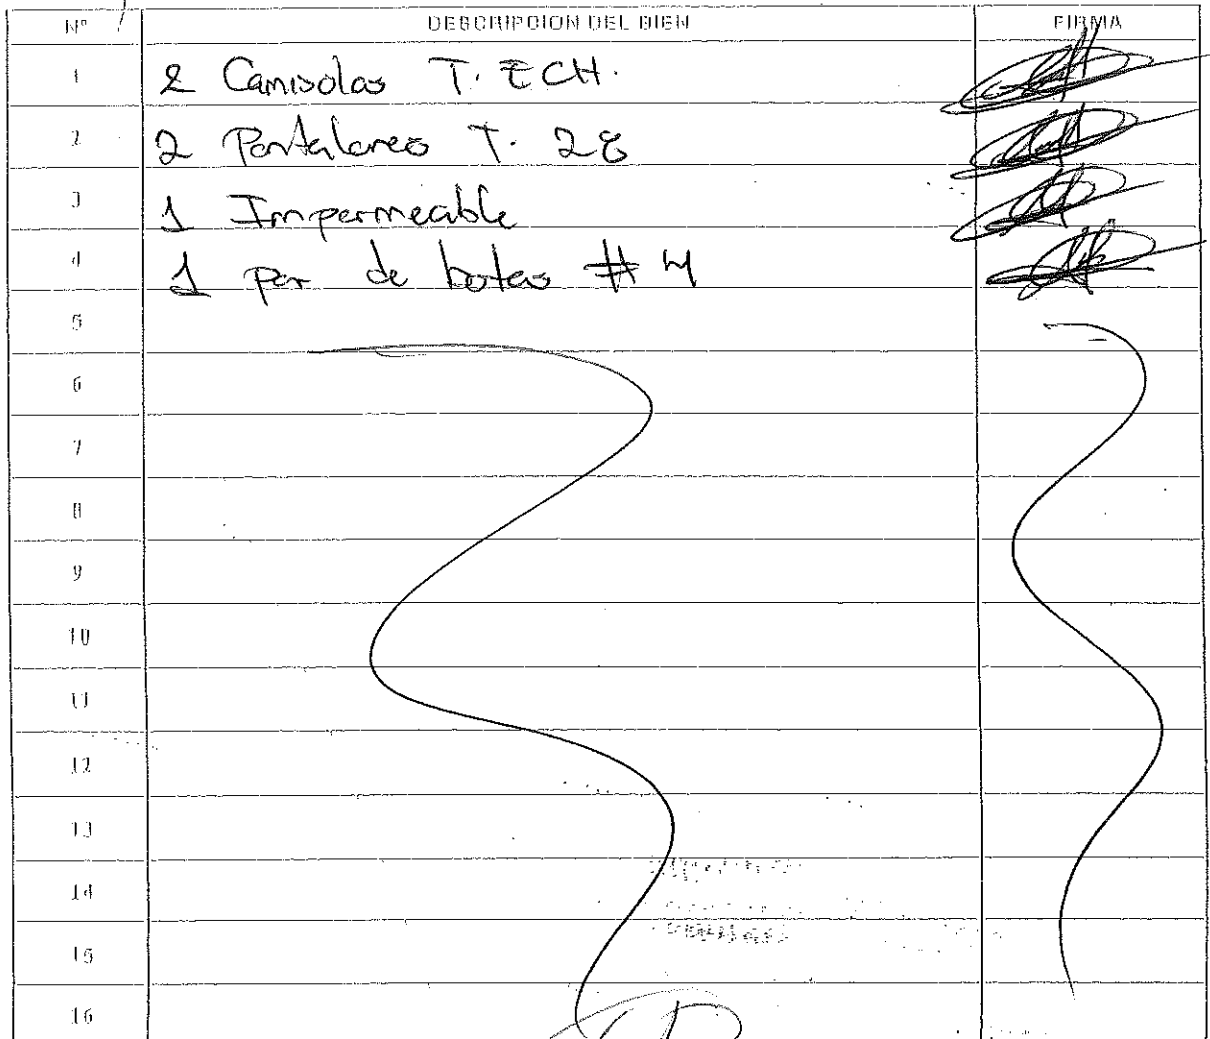 Nº DESCRIPCION DEL BIEN FIRMA
1 2 Camisolas T. ECH.
2 2 Pantalones T. 28
3 1 Impermeable
4 1 par de botas # 4
5
6
7
8
9
10
11
12
13
14
15
16